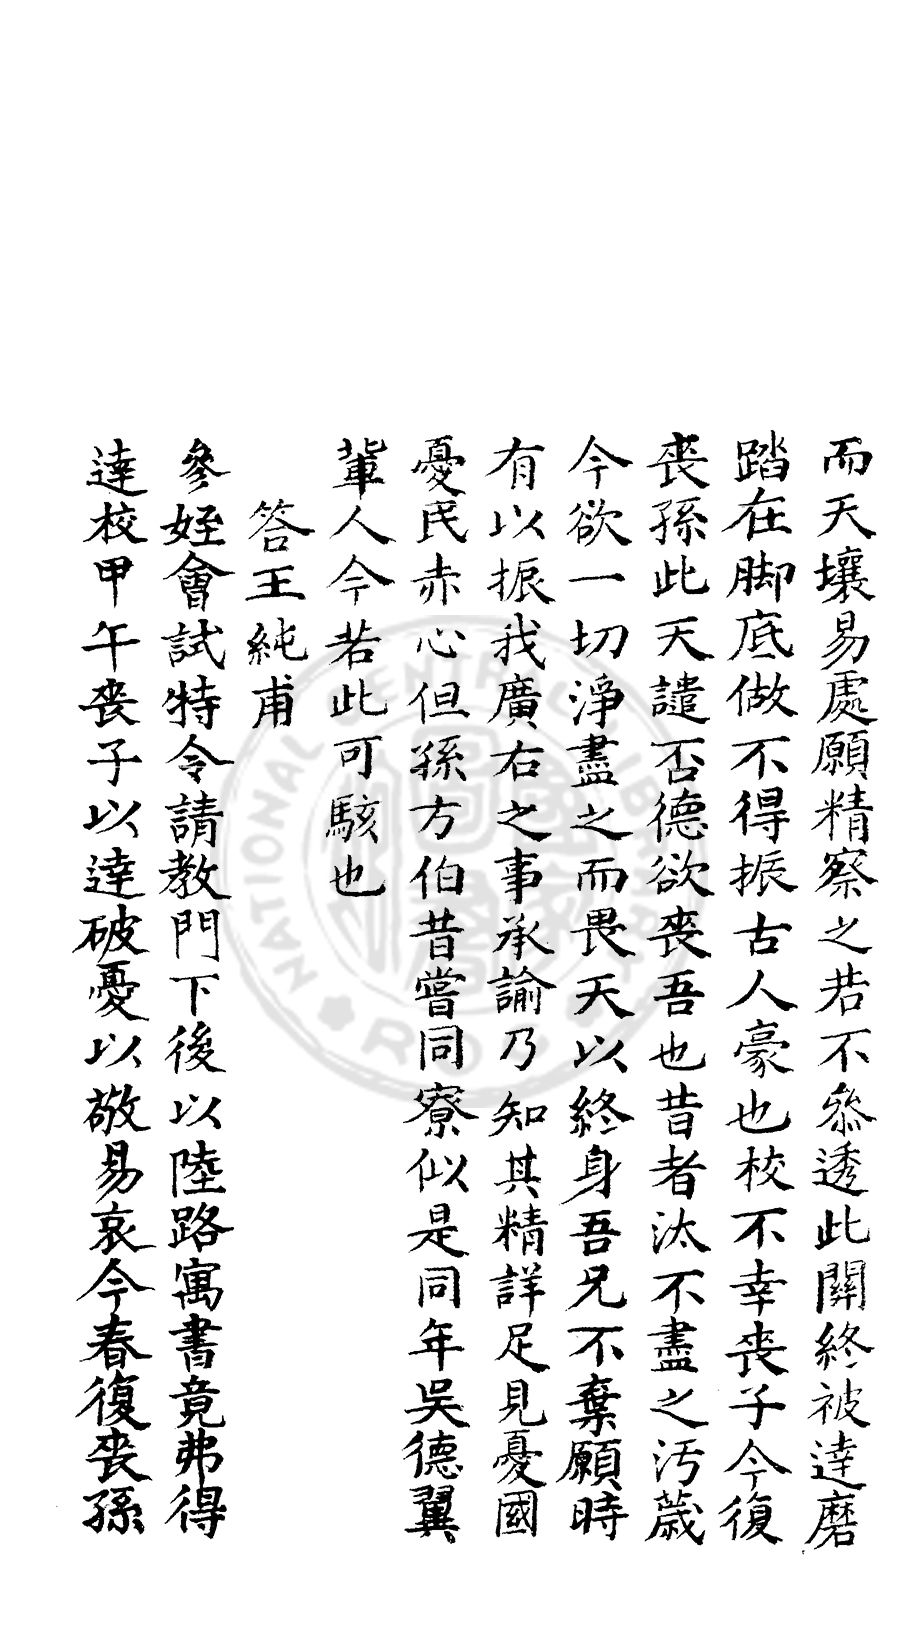 而天壤易處願精察之若不叅透此關終被達磨
踏在脚底做不得振古人豪也校不幸喪子今復
喪孫此天譴否德欲喪吾也昔者汰不盡之汚薉
今欲一切淨盡之而畏天以終身吾兄不棄願時
有以振我廣右之事承諭乃知其精詳足見憂國
憂民赤心但孫方伯昔嘗同寮似是同年吳德翼
輩人今若此可駭也
答王純甫
參姪會試特令請教門下後以陸路寓書竟弗得
達校甲午喪子以達破憂以敬易哀今春復喪孫
NATIONAL CENTRAL LIBRARY
R.O.C.